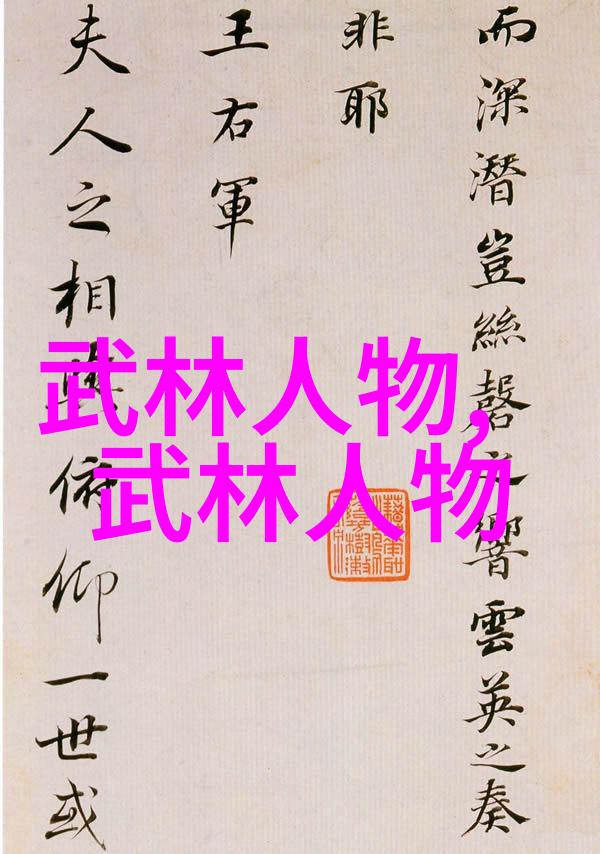 而深潛豈絲磬之響雲英之奏
非耶
王右軍
夫人之相與俯仰一世或
武林人物,
武林人物